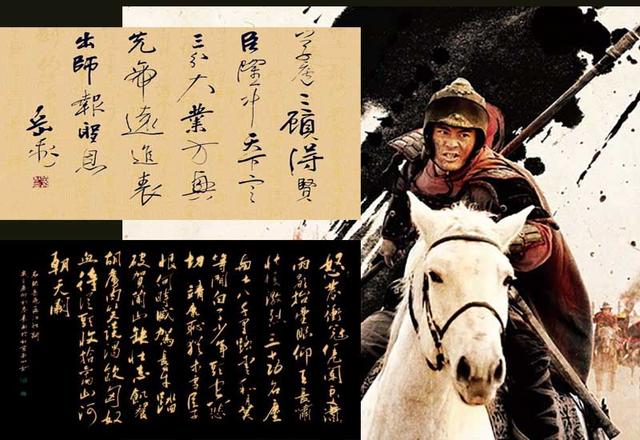 草廬三顾得賢
臣隆中天下定
三分大業方興
先帝遠進表
出師報聖恩
岳飛
怒髮衝冠憑闌處瀟
雨歇抬望眼仰天長嘯
壯懷激烈三十功名塵
與土八千里路雲和月莫
等閒白了少年頭空悲
切靖康恥猶未雪臣子
恨何時滅駕長車踏
破賀蘭山缺壯志飢餐
胡虜肉笑談渴飲匈奴
血待從頭收拾舊山河
朝天闕